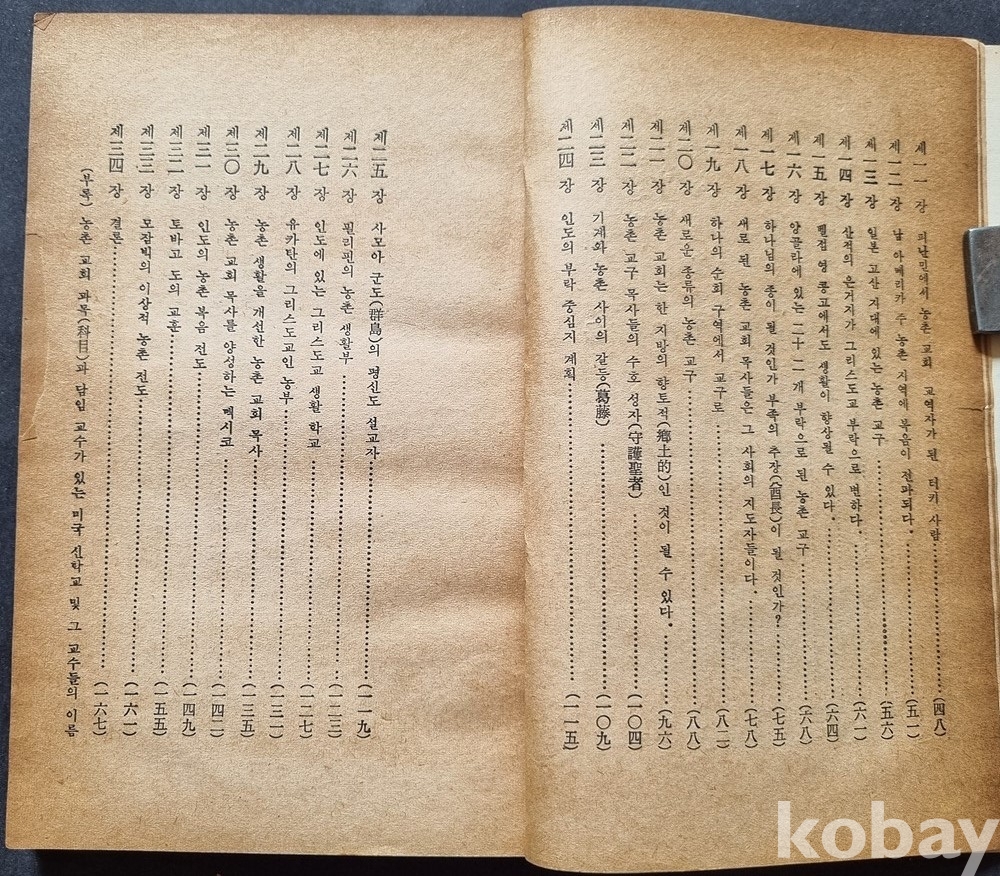 제一一장 피난민에서 농촌 교회 교역자가 된 터키 사람………(四八)
제一二장 남 아메리카 주 농촌 지역에 복음이 전파되다.………(五一)
제一三장 일본 고산 지대에 있는 농촌 교구………(五六)
제一四장 산적의 은거지가 그리스도교 부락으로 변하다.………(六一)
제一五장 벨접 영 콩고에서도 생활이 향상될 수 있다.………(六四)
제一六장 앙골라에 있는 二十二개 부락으로 된 농촌 교구………(六八)
제一七장 하나님의 종이 될 것인가 부족의 추장(酋長)이 될 것인가?………(七五)
제一八장 새로 된 농촌 교회 목사들은 그 사회의 지도자들이다.………(七八)
제一九장 하나의 순회 구역에서 교구로………(八二)
제二〇장 새로운 종류의 농촌 교구………(八八)
제二一장 농촌 교회는 한 지방의 향토적(鄕土的)인 것이 될 수 있다.………(九六)
제二二장 농촌 교구 목사들의 수호 성자(守護聖者)………(一〇四)
제二三장 기계와 농촌 사이의 갈등(葛藤)………(一〇九)
제二四장 인도의 부락 중심지 계획………(一一五)
제二五장 사모아 군도(群島)의 평신도 설교자………(一一九)
제二六장 필리핀의 농촌 생활부………(一二三)
제二七장 인도에 있는 그리스도교 생활 학교………(一二七)
제二八장 유카탄의 그리스도교인 농부………(一三一)
제二九장 농촌 생활을 개선한 농촌 교회 목사………(一三五)
제三〇장 농촌 교회 목사를 양성하는 멕시코………(一四二)
제三一장 인도의 농촌 복음 전도………(一四九)
제三二장 토바고 도의 교훈………(一五五)
제三三장 모잠빅의 이상적 농촌 전도………(一六一)
제三四장 결론………(一六七)
(부록) 농촌 교회 과목(科目)과 담임 교수가 있는 미국 신학교 및 그 교수들의 이름
kobay